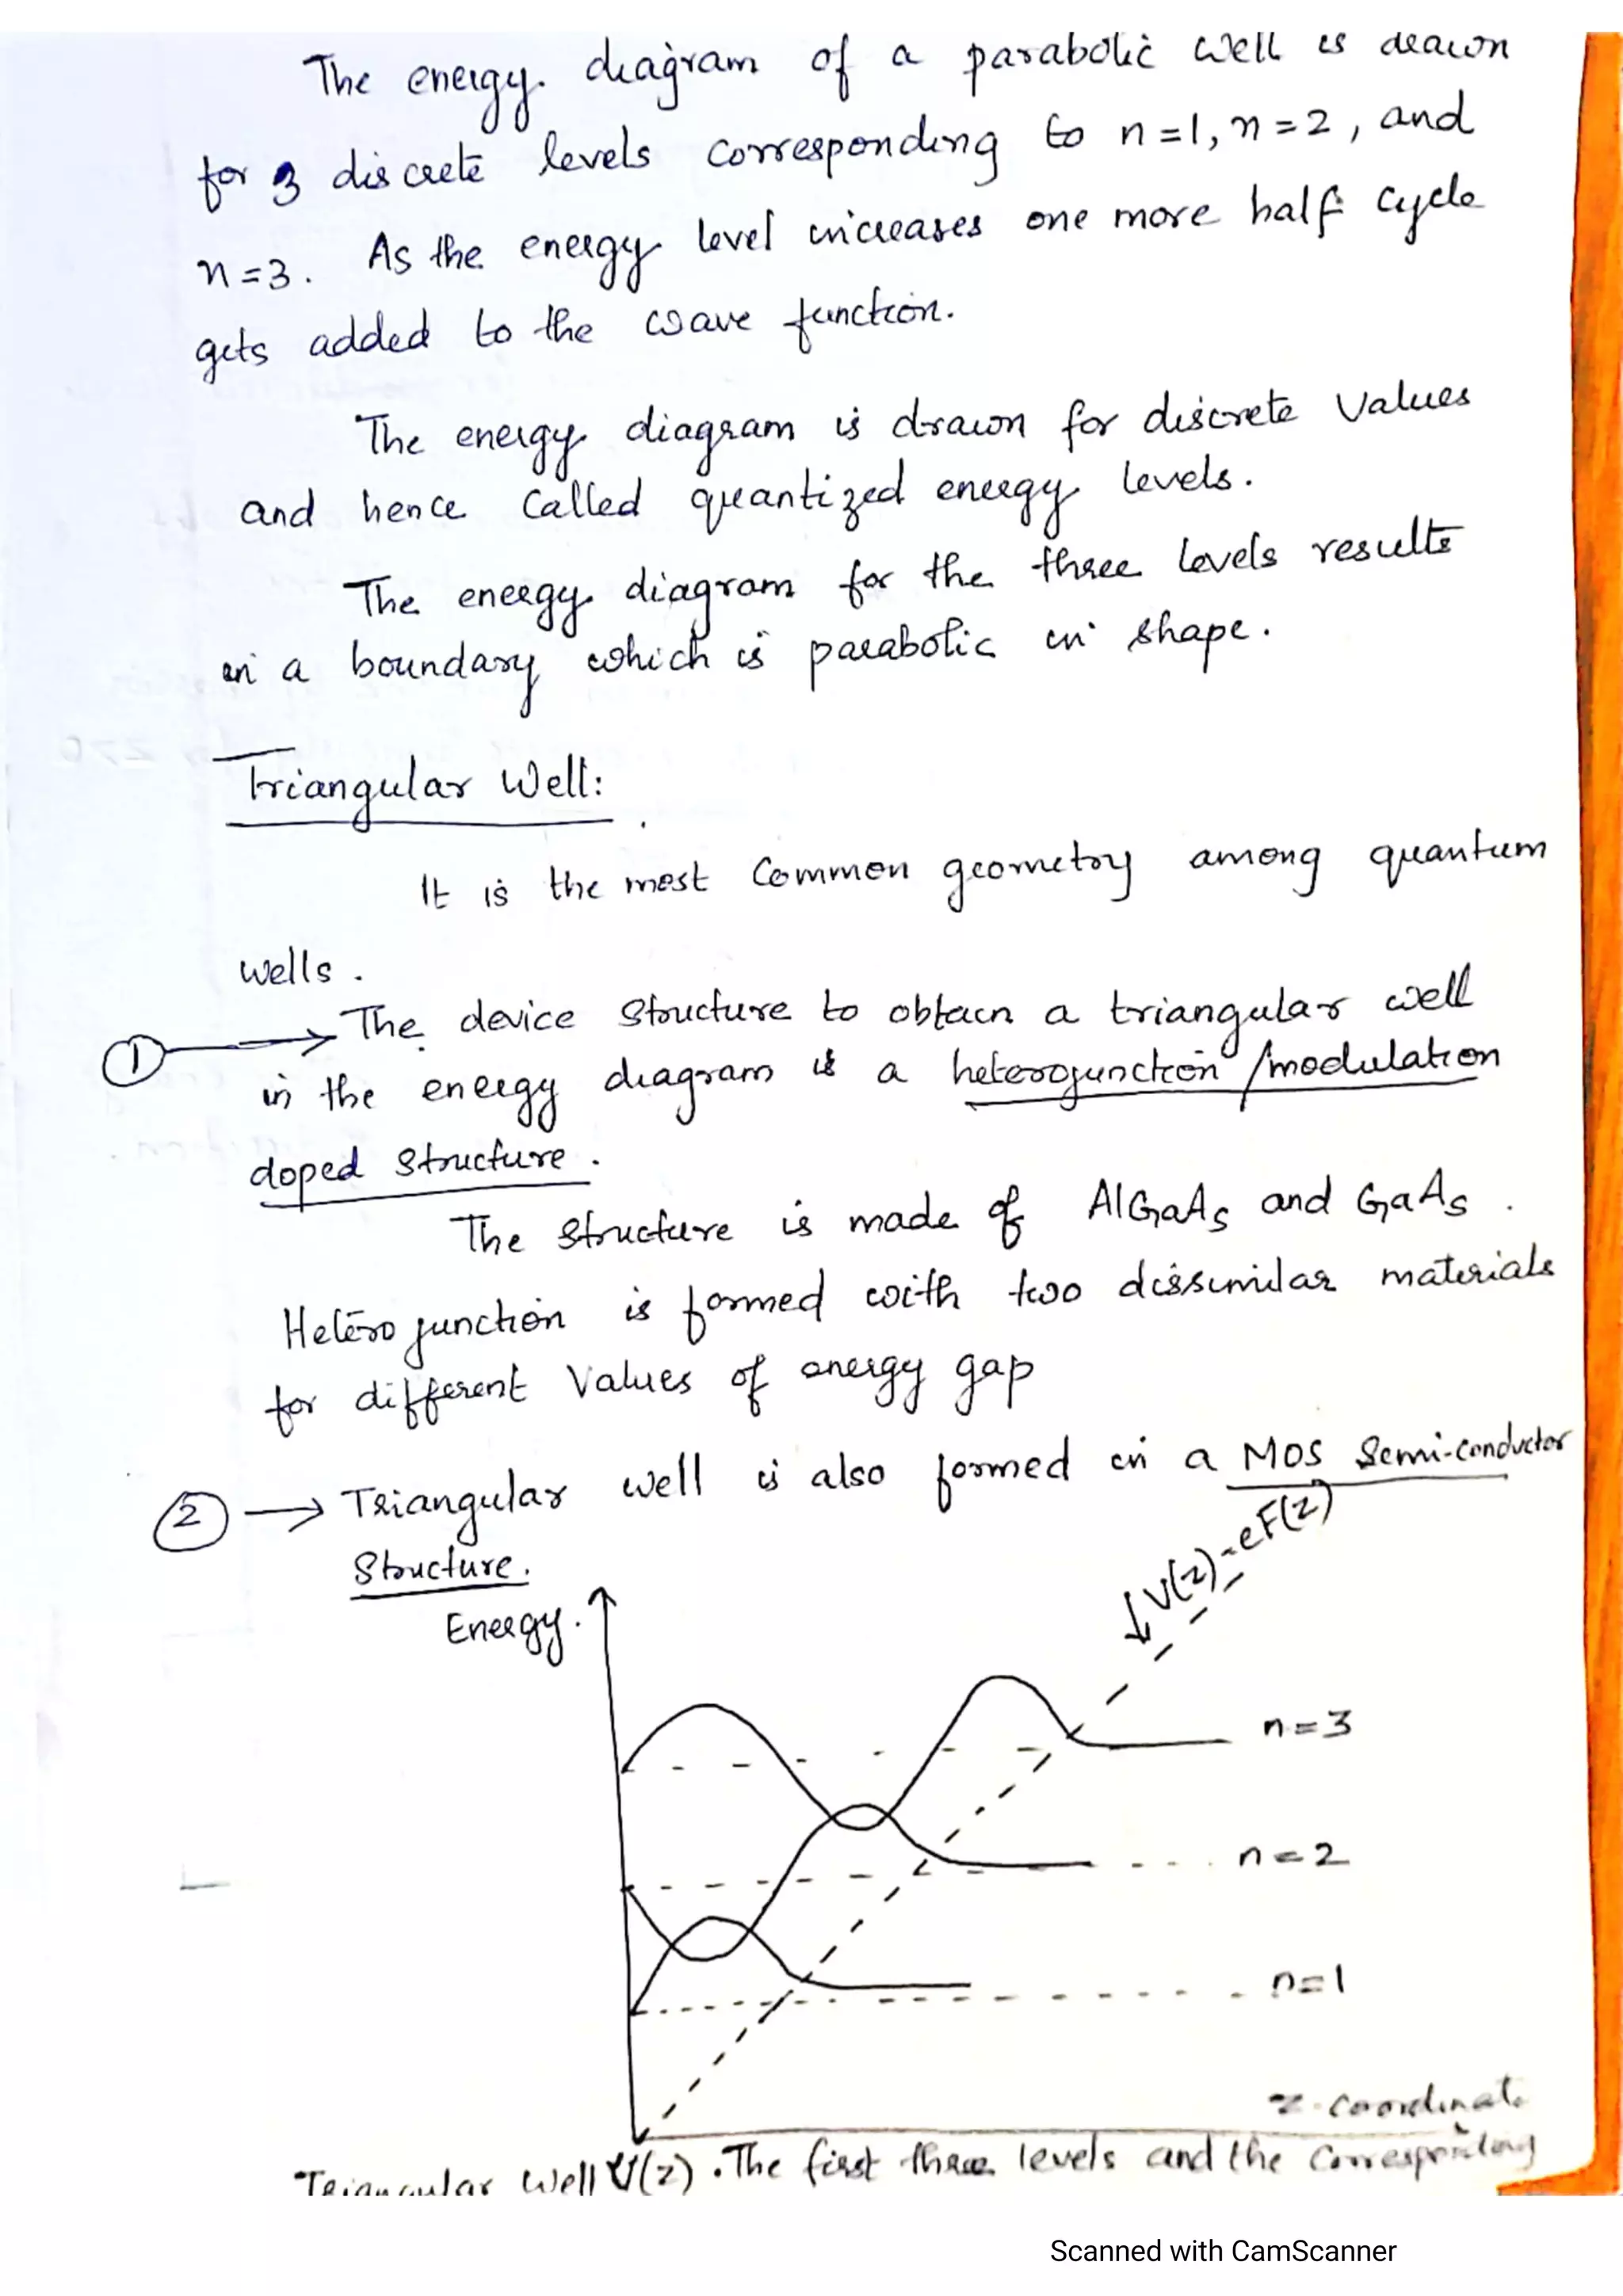 The energy diagram of a parabolic well is drawn
for 3 discrete levels corresponding to n=1, n=2, and
n=3. As the energy level increases one more half cycle
gets added to the wave function.
The energy diagram is drawn for discrete values
and hence called quantized energy levels.
The energy diagram for the three levels results
in a boundary which is parabolic in shape.
Triangular Well:
It is the most common geometry among quantum
wells.
① → The device structure to obtain a triangular well
in the energy diagram is a heterojunction/modulation
doped structure.
The structure is made of AlGaAs and GaAs.
Hetero junction is formed with two dissimilar materials
for different values of energy gap
② → Triangular well is also formed in a MOS Semi-conductor
Structure.
↓ V(z) - eF(z)
Energy.
n=3
n=2
n=1
z-coordinate
Triangular Well V(z). The first three levels and the corresponding
Scanned with CamScanner